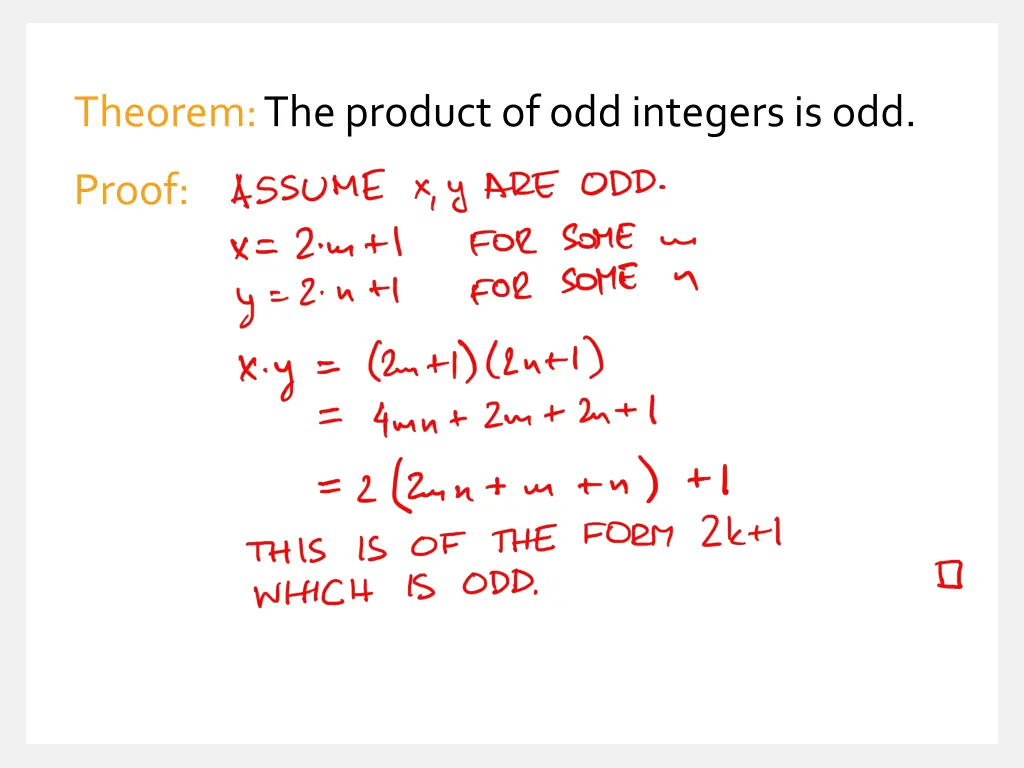 Theorem: The product of odd integers is odd.
Proof: ASSUME x, y ARE ODD.
x = 2·m+1 FOR SOME m
y = 2·n+1 FOR SOME n
x·y = (2m+1)(2n+1)
= 4mn + 2m + 2n + 1
= 2(2mn + m + n) + 1
THIS IS OF THE FORM 2k+1
WHICH IS ODD. □